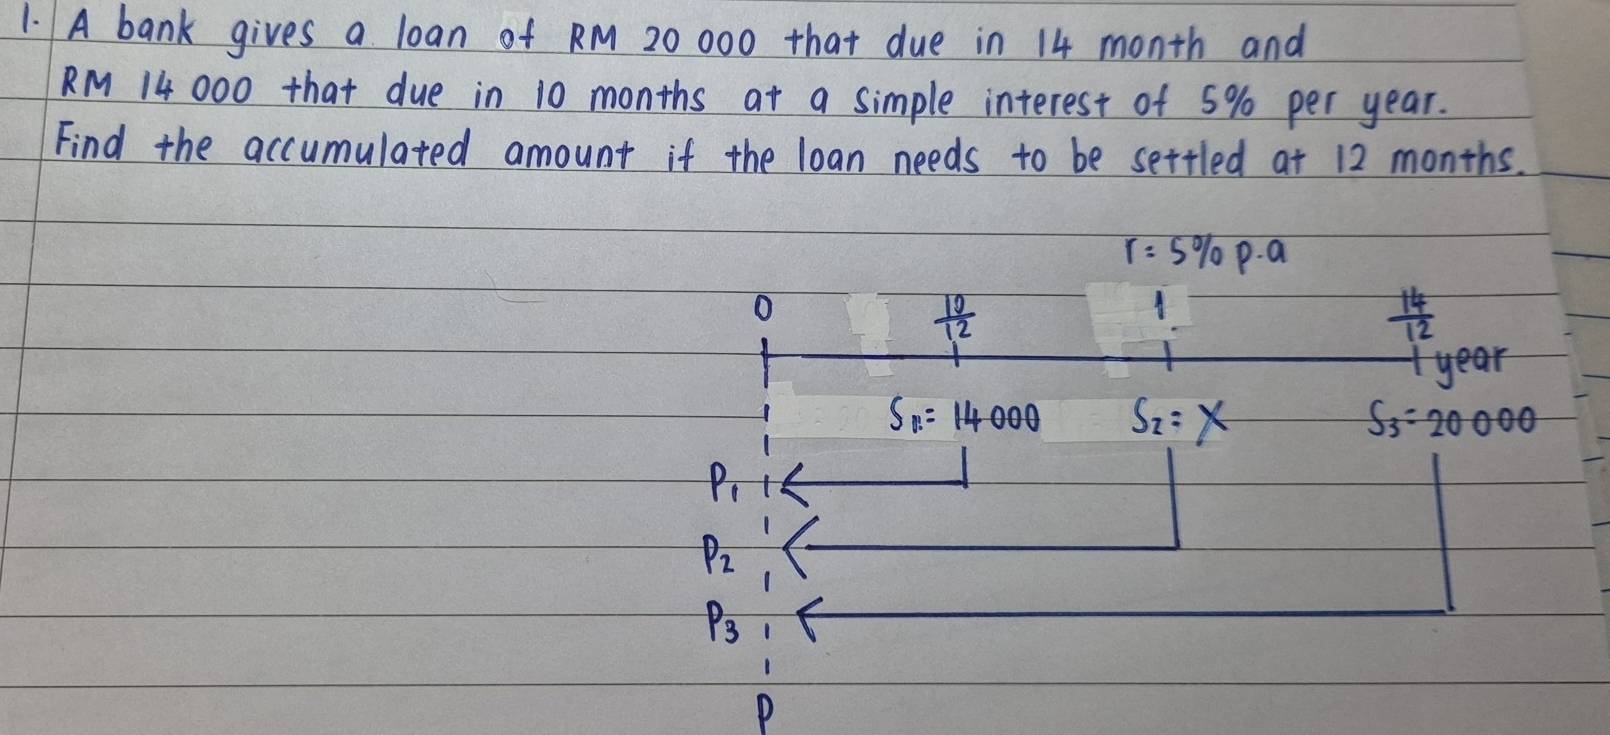 1. A bank gives a loan of RM 20 000 that due in 14 month and
RM 14 000 that due in 10 months at a simple interest of 5% per year.
Find the accumulated amount if the loan needs to be settled at 12 months.
r = 5% p.a
0 10/12 1 14/12
year
S₁ = 14 000 S₂ = X S₃ = 20 000
P₁
P₂
P₃
P